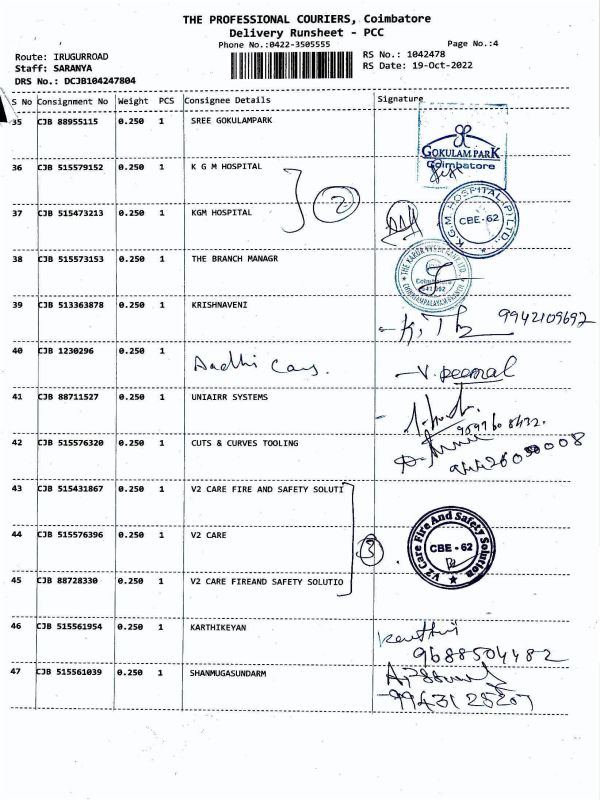 THE PROFESSIONAL COURIERS, Coimbatore
Delivery Runsheet - PCC
Phone No.:0422-3505555
Page No.:4
Route: IRUGURROAD
RS No.: 1042478
Staff: SARANYA
RS Date: 19-Oct-2022
DRS No.: DCJB104247804
S No Consignment No Weight PCS Consignee Details Signature
35 CJB 88955115 0.250 1 SREE GOKULAMPARK
GOKULAM PARK
Coimbatore
36 CJB 515579152 0.250 1 K G M HOSPITAL
2
37 CJB 515473213 0.250 1 KGM HOSPITAL
K.G.M. HOSPITAL (P) LTD.,
CBE-62
38 CJB 515573153 0.250 1 THE BRANCH MANAGR
39 CJB 513363878 0.250 1 KRISHNAVENI
9942109692
40 CJB 1230296 0.250 1 Aadhi Cars.
41 CJB 88711527 0.250 1 UNIAIRR SYSTEMS
42 CJB 515576320 0.250 1 CUTS & CURVES TOOLING
43 CJB 515431867 0.250 1 V2 CARE FIRE AND SAFETY SOLUTI
44 CJB 515576396 0.250 1 V2 CARE
3
V2 Care Fire And Safety Solution
CBE - 62
45 CJB 88728330 0.250 1 V2 CARE FIREAND SAFETY SOLUTIO
46 CJB 515561954 0.250 1 KARTHIKEYAN
9688504482
47 CJB 515561039 0.250 1 SHANMUGASUNDARM